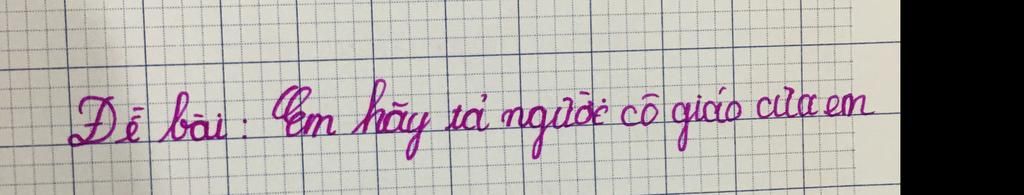 Đề bài: Em hãy tả người cô giáo của em